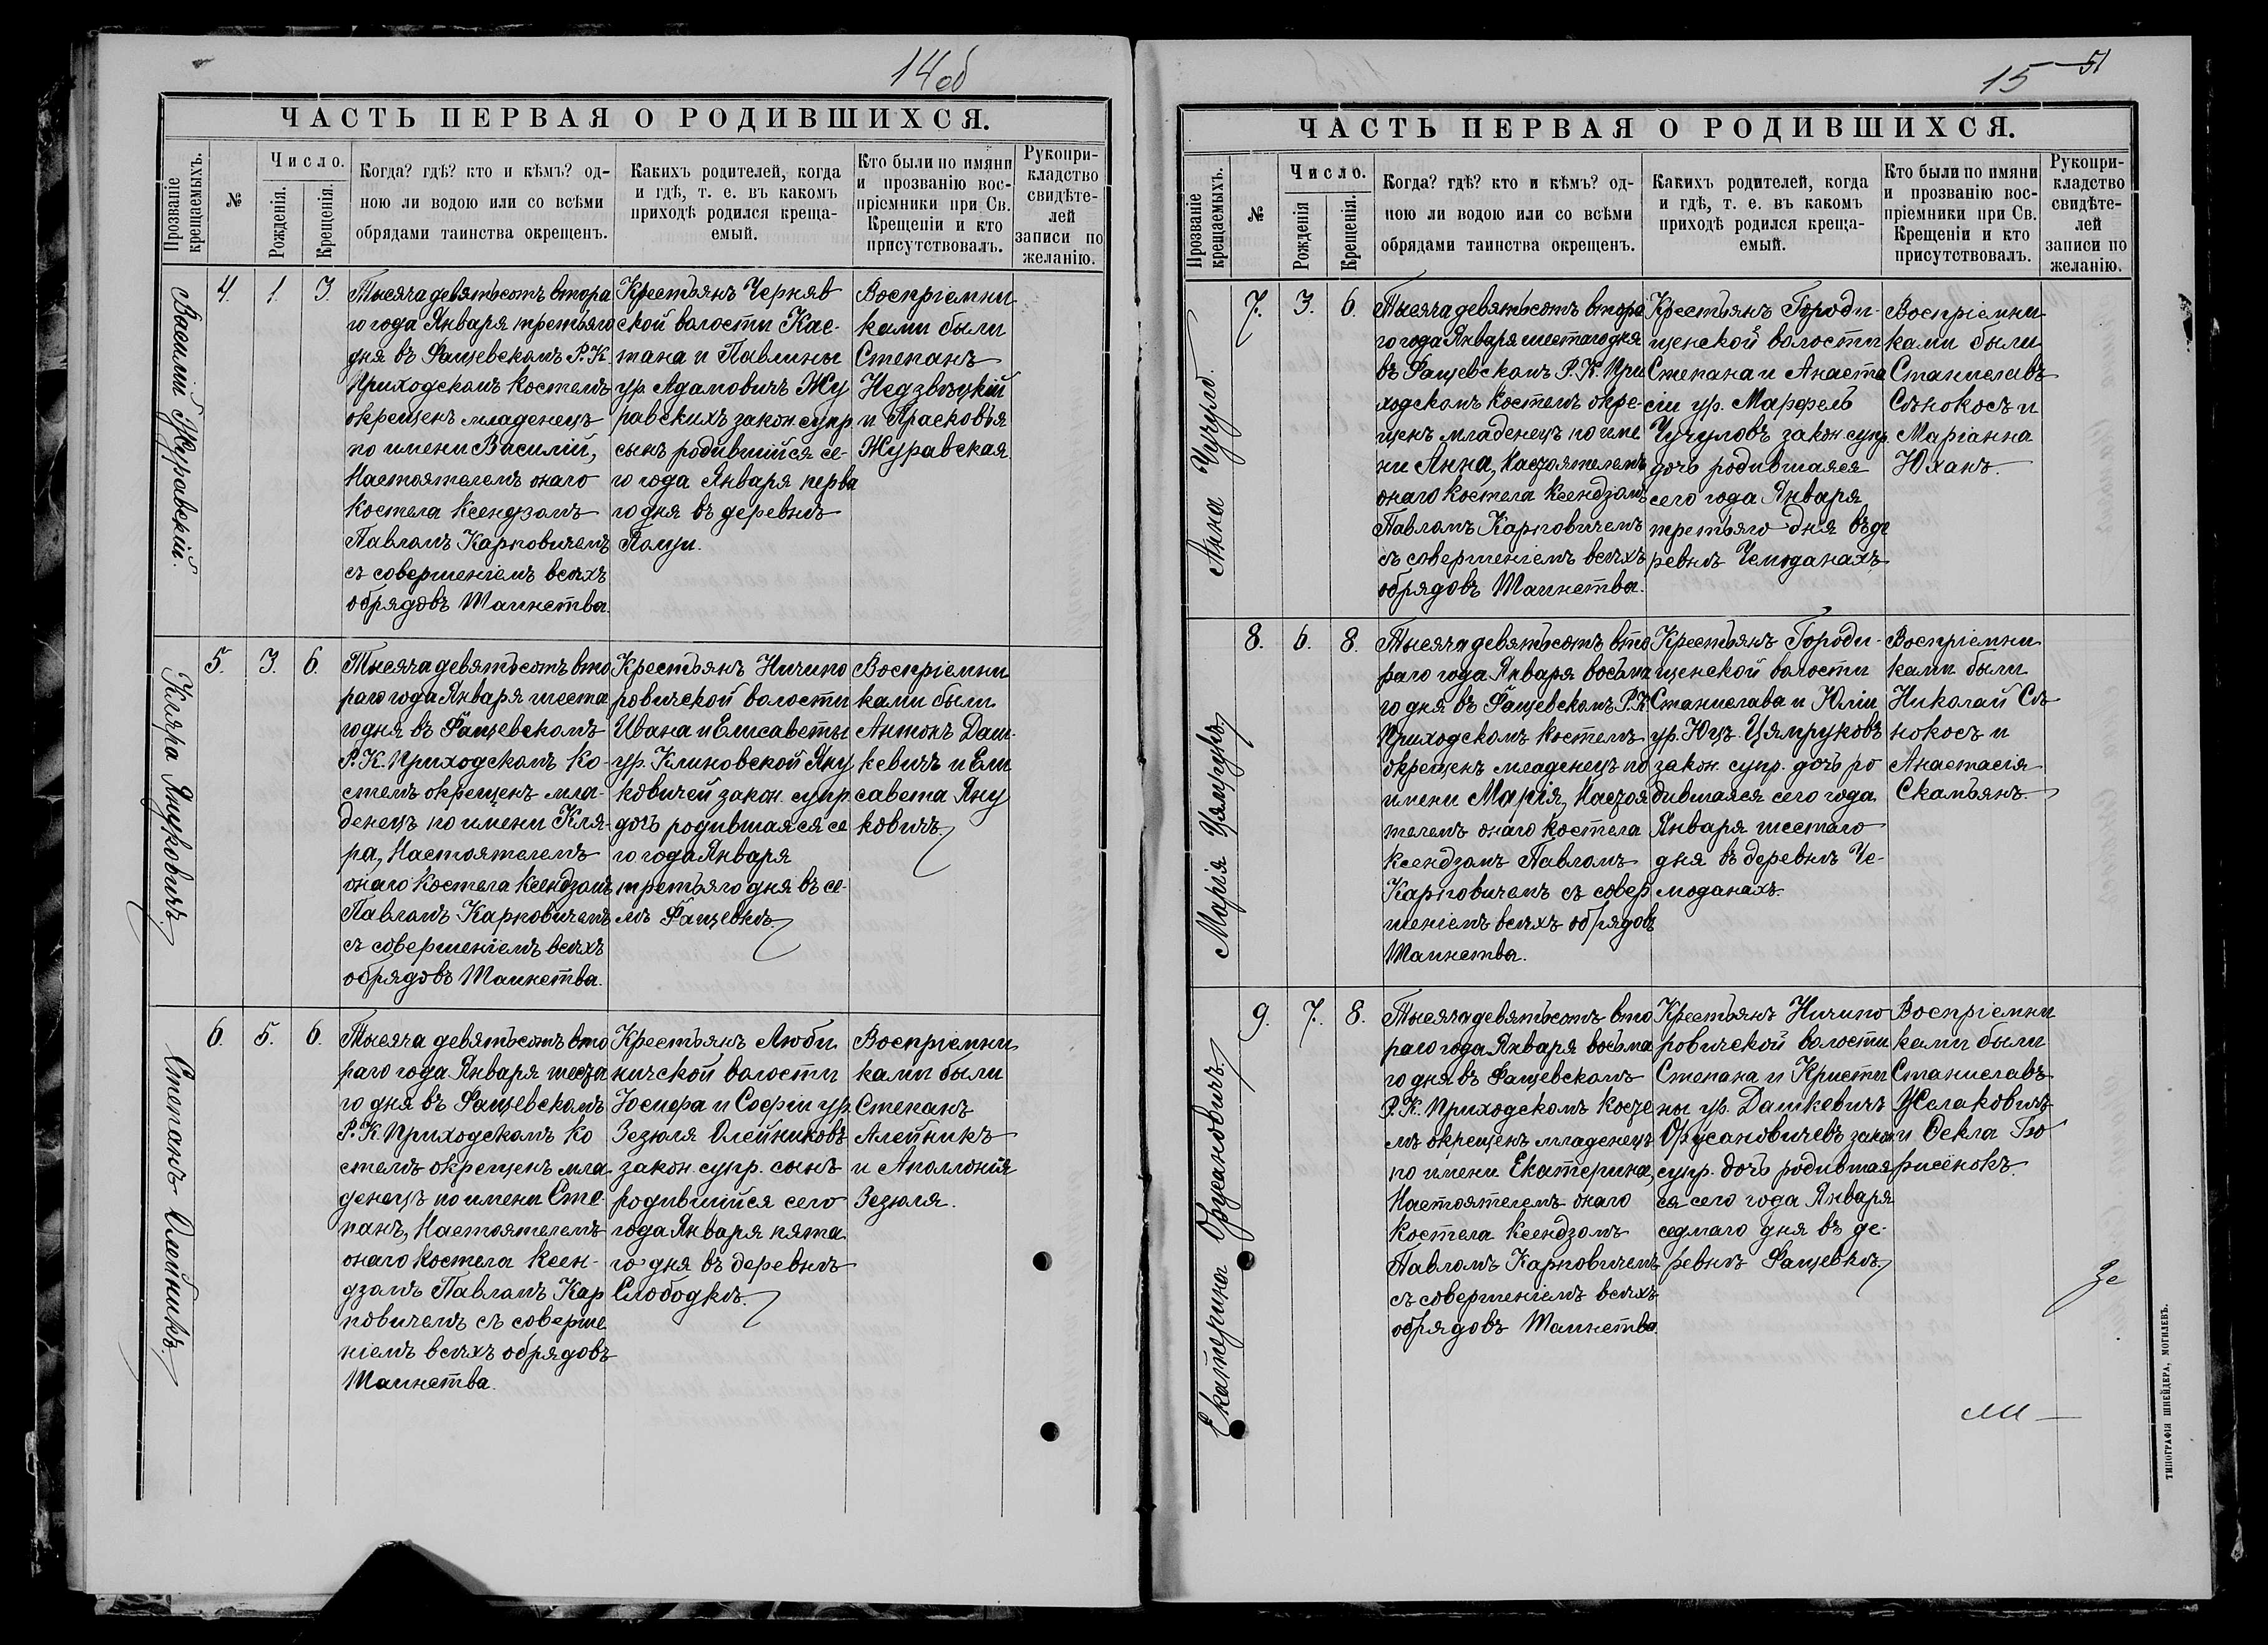 14об
ЧАСТЬ ПЕРВАЯ О РОДИВШИХСЯ.
Прозваніе
крещаемыхъ.
№
Число.
Рожденія.
Крещенія.
Когда? гдѣ? кто и кѣмъ? од-
ною ли водою или со всѣми
обрядами таинства окрещенъ.
Какихъ родителей, когда
и гдѣ, т. е. въ какомъ
приходѣ родился креща-
емый.
Кто были по имяни
и прозванію вос-
пріемники при Св.
Крещеніи и кто
присутствовалъ.
Рукопри-
кладство
свидѣте-
лей
записи по
желанію.
Василій Журавскій.
4.
1.
3.
Тысяча девятьсотъ втора
го года Января третьяго
дня въ Фащевскомъ Р. К.
Приходскомъ костелѣ
окрещенъ младенецъ
по имени Василій,
Настоятелемъ онаго
костела Ксендзомъ
Павломъ Карповичемъ
съ совершеніемъ всѣхъ
обрядовъ Таинства.
Крестьянъ Черняв
ской волости Кас-
тана и Павлины
ур. Адамовичъ Жу
равскихъ закон. супр.
сынъ родившійся се-
го года Января перва
го дня въ деревнѣ
Воспріемни
ками были
Степанъ
Недзвѣцкій
и Прасковья
Журавская.
Кляра Януковичъ
5.
3.
6.
Тысяча девятьсотъ вто
раго года Января шеста
го дня въ Фащевскомъ
Р. К. Приходскомъ ко-
стелѣ окрещенъ мла-
денецъ по имени Кля-
ра, Настоятелемъ
онаго костела Ксендзомъ
Павломъ Карповичемъ
съ совершеніемъ всѣхъ
обрядовъ Таинства.
Крестьянъ Ничипо
ровичской волости
Ивана и Елисаветы
ур. Климовской Яну
ковичей закон. супр.
дочь родившаяся се
го года Января
третьяго дня въ се-
лѣ Фащевкѣ.
Воспріемни
ками были
Антонъ Даш-
кевичъ и Ели
савета Яну
ковичъ.
Степанъ Олейникъ.
6.
5.
6.
Тысяча девятьсотъ вто
раго года Января шеста
го дня въ Фащевскомъ
Р. К. Приходскомъ ко
стелѣ окрещенъ мла
денецъ по имени Сте-
панъ, Настоятелемъ
онаго костела Ксен-
дзомъ Павломъ Кар
повичемъ съ соверше
ніемъ всѣхъ обрядовъ
Таинства.
Крестьянъ Люби
ничской волости
Іосифа и Софіи ур.
Зезюля Олейниковъ
закон. супр. сынъ
родившійся сего
года Января пята
го дня въ деревнѣ
Слободкѣ.
Воспріемни
ками были
Степанъ
Алейникъ
и Аполлонія
Зезюля.
15
51
ЧАСТЬ ПЕРВАЯ О РОДИВШИХСЯ.
Прозваніе
крещаемыхъ.
№
Число.
Рожденія
Крещенія.
Когда? гдѣ? кто и кѣмъ? од-
ною ли водою или со всѣми
обрядами таинства окрещенъ.
Какихъ родителей, когда
и гдѣ, т. е. въ какомъ
приходѣ родился креща-
емый.
Кто были по имяни
и прозванію вос-
пріемники при Св.
Крещеніи и кто
присутствовалъ.
Рукопри-
кладство
свидѣте-
лей
записи по
желанію.
Анна Чучулъ.
7.
3.
6.
Тысяча девятьсотъ втора
го года Января шестаго дня
въ Фащевскомъ Р. К. При
ходскомъ костелѣ окре-
щенъ младенецъ по име
ни Анна, Настоятелемъ
онаго костела Ксендзомъ
Павломъ Карповичемъ
съ совершеніемъ всѣхъ
обрядовъ Таинства.
Крестьянъ Городи-
щенской волости
Степана и Анаста
сіи ур. Марфель
Чучуловъ закон. супр.
дочь родившаяся
сего года Января
третьяго дня въ де
ревнѣ Чемоданахъ.
Воспріемни
ками были
Станиславъ
Сѣнокосъ и
Маріанна
Юханъ.
Марія Цямрукъ
8.
6.
8.
Тысяча девятьсотъ вто
раго года Января восьма
го дня въ Фащевскомъ Р. К.
Приходскомъ костелѣ
окрещенъ младенецъ по
имени Марія, Настоя
телемъ онаго костела
Ксендзомъ Павломъ
Карповичемъ съ совер
шеніемъ всѣхъ обрядовъ
Таинства.
Крестьянъ Городи-
щенской волости
Станислава и Юліи
ур. Юцъ Цямруковъ
закон. супр. дочь ро
дившаяся сего года
Января шестаго
дня въ деревнѣ Че-
моданахъ.
Воспріемни
ками были
Николай Сѣ
нокосъ и
Анастасія
Скамьянъ.
Екатерина Фрусановичъ
9.
7.
8.
Тысяча девятьсотъ вто
раго года Января восьма
го дня въ Фащевскомъ
Р. К. Приходскомъ косте
лѣ окрещенъ младенецъ
по имени Екатерина,
Настоятелемъ онаго
костела Ксендзомъ
Павломъ Карповичемъ
съ совершеніемъ всѣхъ
обрядовъ Таинства.
Крестьянъ Ничипо
ровичской волости
Степана и Кристи
ны ур. Дашкевичъ
Фрусановичевъ закон.
супр. дочь родившая
ся сего года Января
седмаго дня въ де-
ревнѣ Фащевкѣ.
Воспріемни
ками были
Станиславъ
Желаковичъ
и Ѳекла Бо
рисёнокъ.
ТИПОГРАФІЯ ШНЕЙДЕРА, МОГИЛЕВЪ.